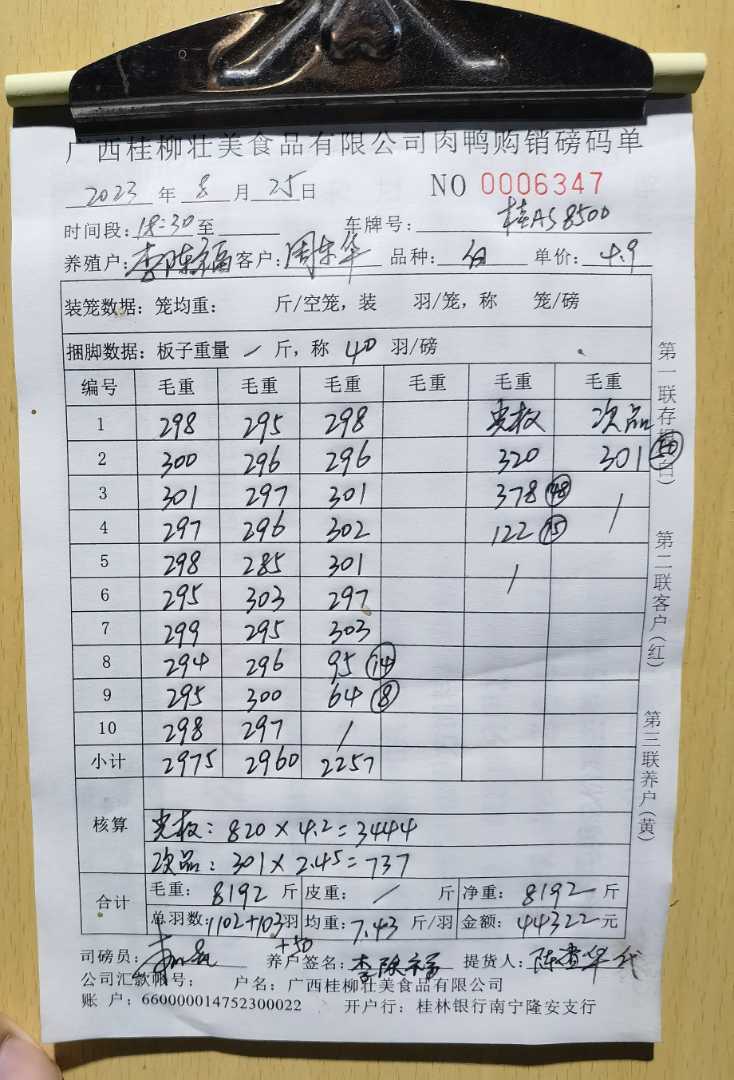 广西桂柳壮美食品有限公司肉鸭购销磅码单
2023 年 8 月 25 日 NO 0006347
时间段: 18:30 至 车牌号: 桂AS8500
养殖户: 李陈福 客户: 周东华 品种: 白 单价: 4.9
装笼数据: 笼均重: 斤/空笼, 装 羽/笼, 称 笼/磅
捆脚数据: 板子重量 / 斤, 称 40 羽/磅
编号 毛重 毛重 毛重 毛重 毛重 毛重
1 298 295 298 光板 次品
2 300 296 296 320 301 50
3 301 297 301 378 48 /
4 297 296 302 122 15
5 298 285 301 /
6 295 303 297
7 299 295 303
8 294 296 95 14
9 295 300 64 8
10 298 297 /
小计 2975 2960 2257
核算
光板: 820 × 4.2 = 3444
次品: 301 × 2.45 = 737
合计 毛重: 8192 斤 皮重: / 斤 净重: 8192 斤
总羽数: 1102+103 羽 均重: 7.43 斤/羽 金额: 44322 元
+50
司磅员: 养户签名: 李陈福 提货人: 陈 华代
公司汇款帐号: 户名: 广西桂柳壮美食品有限公司
账 户: 660000014752300022 开户行: 桂林银行南宁隆安支行
第一联存根(白)
第二联客户(红)
第三联养户(黄)